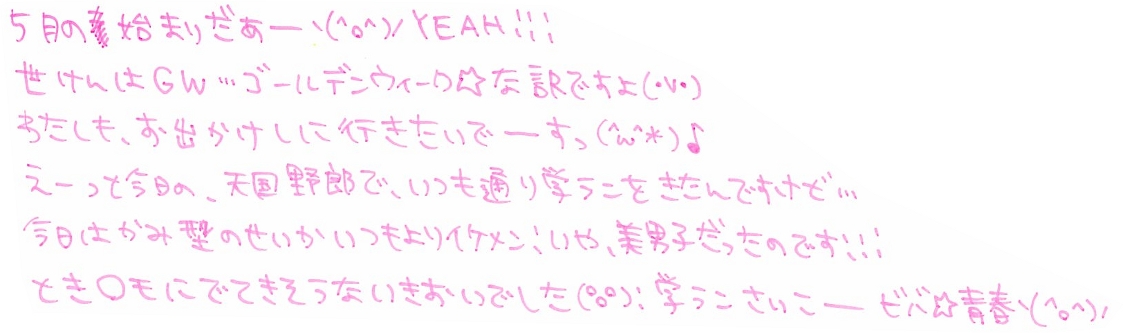 5月の始まりだあーヽ(^o^)ノYEAH!!!
世けんはGW…ゴールデンウィーク☆な訳ですよ(・v・)
わたしも、お出かけしに行きたいでーすっ(^ω^*)♪
えーっと今日の、天国野郎で、いつも通り学ランをきたんですけど…
今日はかみ型のせいかいつもよりイケメン!いや、美男子だったのです!!!
とき〇モにでてきそうないきおいでした(°o°)!学ランさいこー ビバ☆青春ヽ(^o^)ノ